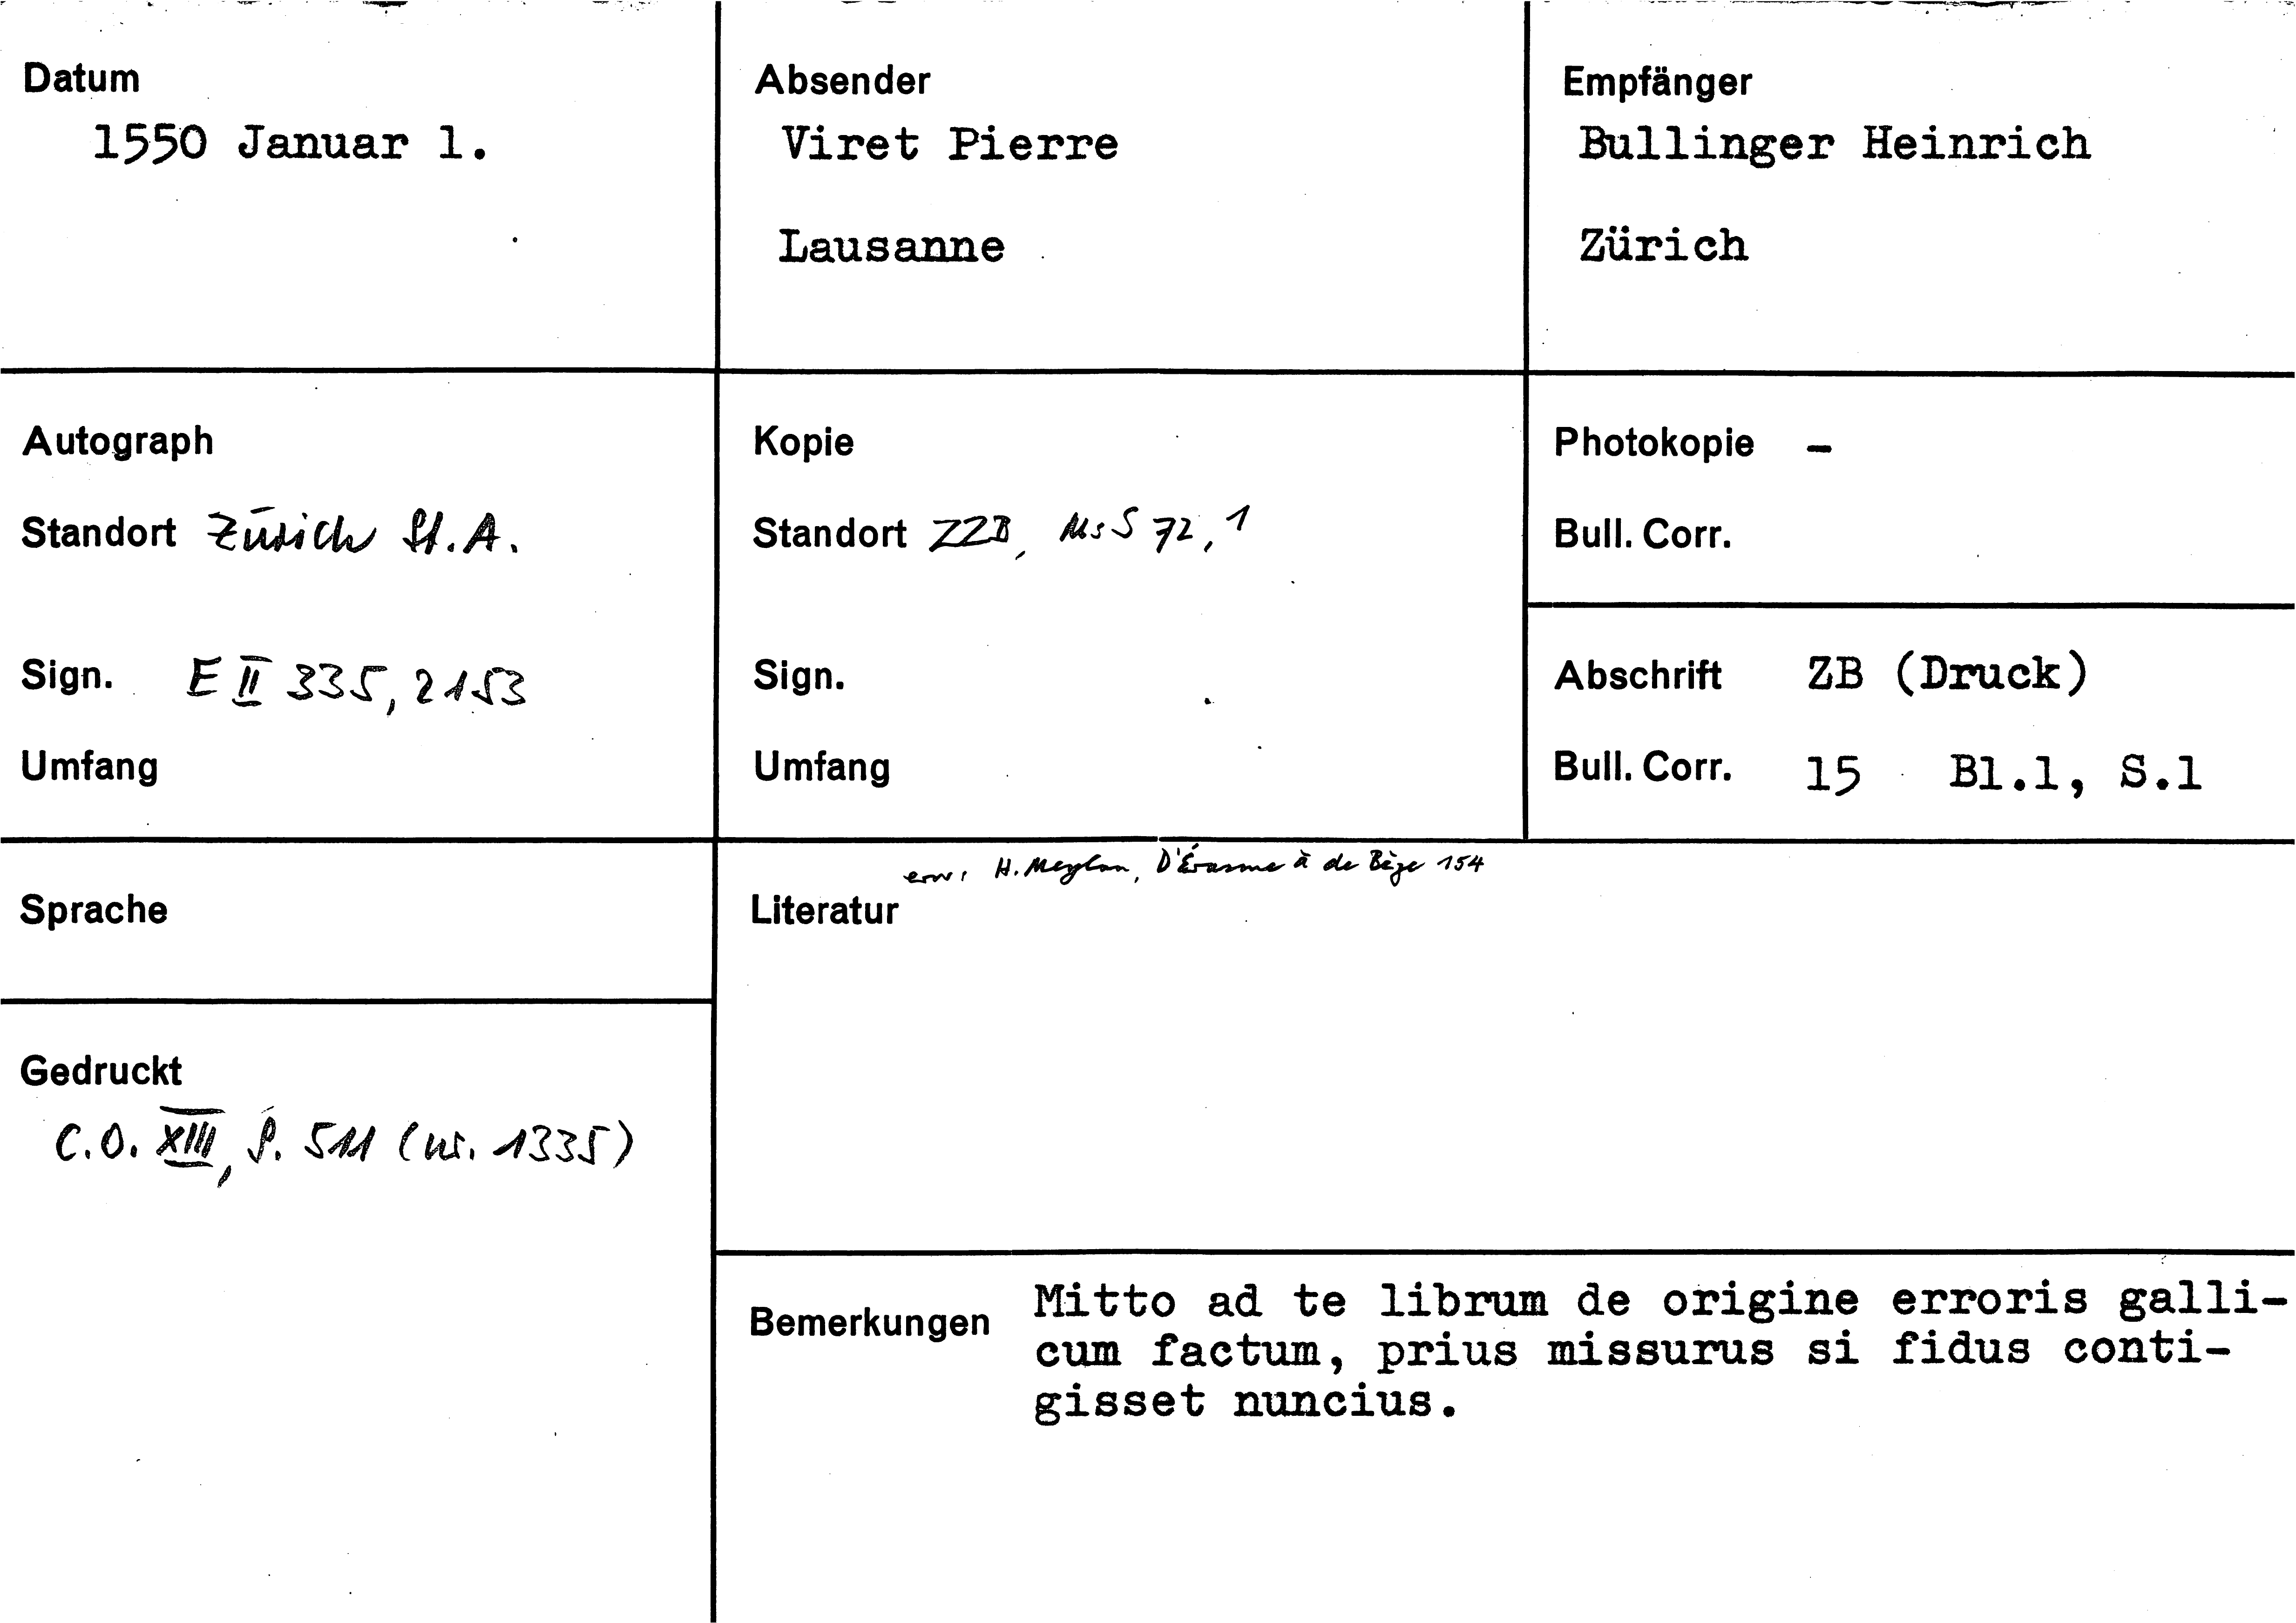 Datum
1550 Januar 1.
Absender
Viret Pierre
Lausanne
Empfänger
Bullinger Heinrich
Zürich
Autograph
Standort Zürich St.A.
Sign. E II 335, 2153
Umfang
Kopie
Standort ZZB, Ms S 72, 1
Sign.
Umfang
Photokopie -
Bull. Corr.
Abschrift ZB (Druck)
Bull. Corr. 15 Bl.1, S.1
Sprache
Gedruckt
C.O. XIII, S. 511 (nr. 1335)
erw: H. Meylan, D'Érasme à de Bèze 154
Literatur
Bemerkungen Mitto ad te librum de origine erroris galli-
cum factum, prius missurus si fidus conti-
gisset nuncius.